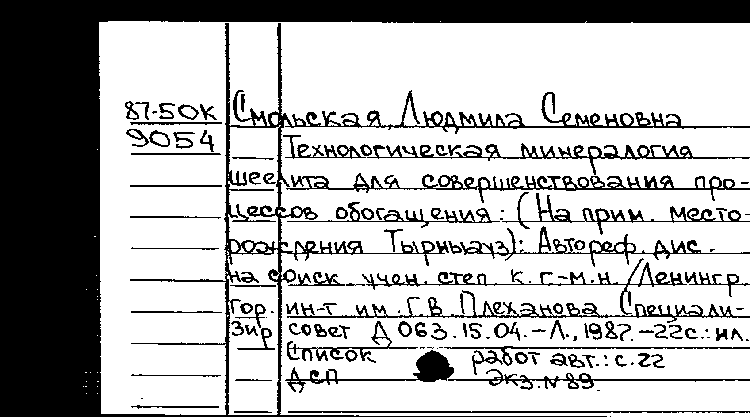 87-50К Смольская, Людмила Семеновна
9054 Технологическая минералогия
шеелита для совершенствования про-
цессов обогащения: (На прим. место-
рождения Тырныауз): Автореф. дис.
на соиск. учен. степ к. г.-м.н. /Ленингр.
гор. ин-т им. Г.В Плеханова Специали-
Зир совет Д 063.15.04.-Л., 1987.-22с.: ил.
Список работ авт.: с.22
ДСП Экз. N 89.